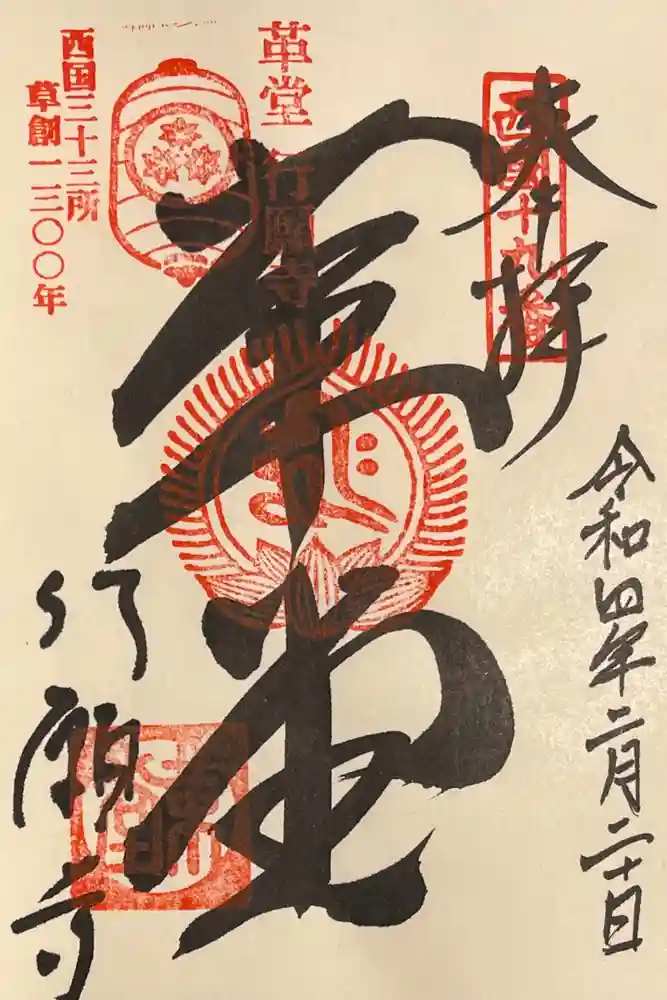 奉拝
西国十九番
令和四年二月二十日
革堂
革堂 行願寺
西国三十三所
草創一三〇〇年
行願寺